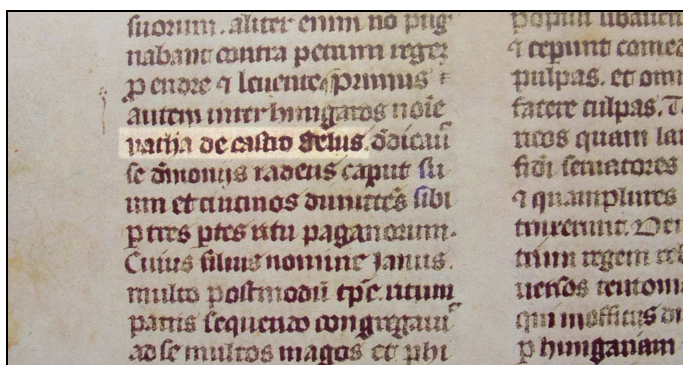 suorum. aliter enim no pug
nabant contra petrum regez
p endre ⁊ leuente. Primus
autem inter hungaros noie
vatha de castro belus. ddicau
se dmoniis radens caput su
um et cincinos dimittes sibi
p tres ptes ritu paganorum.
Cuius filius nomine Janus.
multo postmodu tpe. ritum
patris sequendo congregaui
ad se multos magos et phi
populi
⁊ ceperunt
pulpas. et omn
facere culpas.
quam
fidi seruatores
⁊ quamplures
trum regem
uersos teutoni
qui in officiis
p hungariam